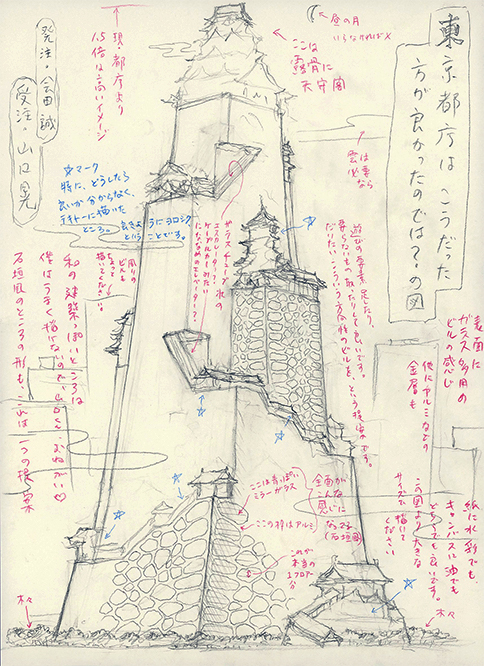 東京都庁はこうだった
方が良かったのでは?の図
発注・会田誠
受注・山口晃
昼の月
いらなければ×
ここは
露骨に
天守閣
現都庁より
1.5倍は高いイメージ
雲は
必要なら
☆マーク
特に、どうしたら
良いか分からなく、
テキトーに描いた
ところ。良きようにヨロシク
ということです。
ガラスチューブ状の
エスカレーター?
ケーブルカーみたい
にななめのエレベーター?
遊びの要素足したり、
要らないもの取ったりして良いです。
だいたいこういう方向性のビルを、という提案です。
表面に
ガラス多用の
ビルの感じ
他にアルミなどの
金属も
周りの
ビルも
ちょっと
描いてください。
和の建築っぽいところは
僕はうまく描けないので山口さん、おねがい♡
石垣風のところの形も、これは一つの提案
紙に水彩でも、
キャンバスに油でも
どちらでも良いです。
この図より大きな
サイズで描いて
ください
ここは青っぽい
ミラーガラス
ここの枠はアルミ
全面が
こんな
感じに
なってる
(石垣風)
これが
本当の
1フロアー
分
木々
木々